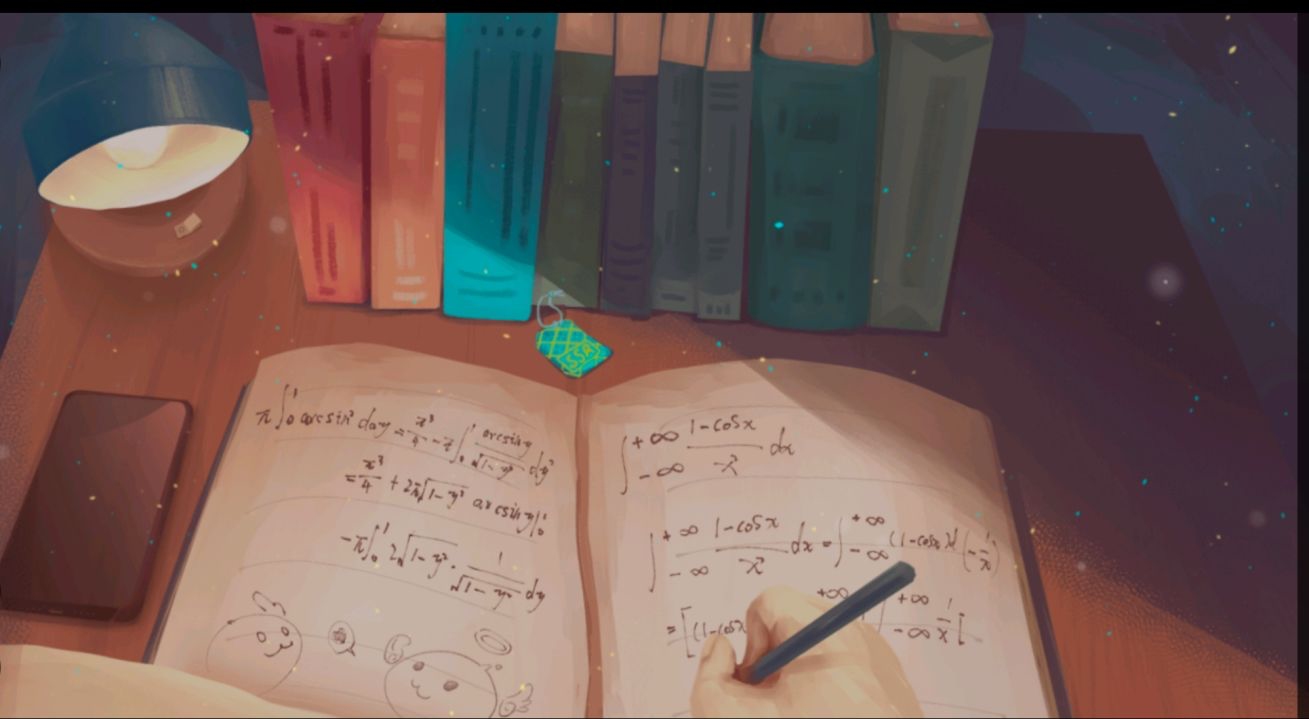 SSR
π∫₀¹ arcsin² dαy = π³/4 - π∫₀¹ arcsiny/√1-y² dy²
= π³/4 + 2π√1-y² arcsiny|₀¹
-π∫₀¹ 2√1-y² · 1/√1-y² dy
∫₋∞⁺∞ 1-cosx/x² dx
∫₋∞⁺∞ 1-cosx/x² dx = ∫₋∞⁺∞ (1-cosx)d(-1/x)
= [(1-cosx +∞ ∫₋∞⁺∞ 1/x [